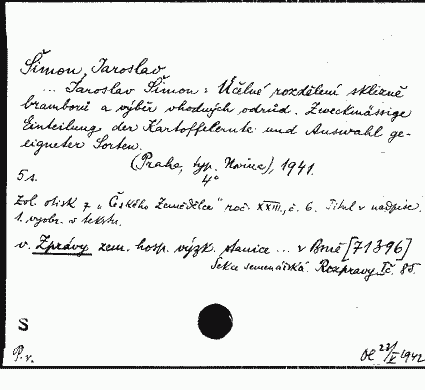 Šimon, Jaroslav
... Jaroslav Šimon: Účelné rozdělení sklizně
bramborů a výběr vhodných odrůd. Zweckmässige
Einteilung der Kartoffelernte und Auswahl ge-
eigneter Sorten.
(Praha, typ. Novina), 1941.
5 s. 4°
Zvl. otisk z „Českého Zemědělce" roč. XXIII, č. 6. Titul v nadpise.
1 vyobr. v textu.
v. Zprávy zem. hosp. výzk. stanice ... v Brně [71396]
Sekce semenářská. Rozpravy č. 85.
S
P. v.
22/V 1942